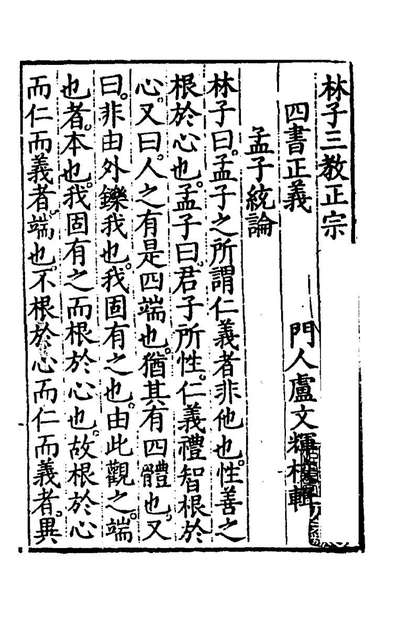 林子三教正宗
四書正義
門人盧文輝校輯
孟子統論
林子曰。孟子之所謂仁義者非他也。性善之
根於心也。孟子曰。君子所性。仁義禮智根於
心。又曰。人之有是四端也。猶其有四體也。又
曰。非由外鑠我也。我固有之也。由此觀之。端
也者。本也。我固有之而根於心也。故根於心
而仁而義者。端也。不根於心而仁而義者。異